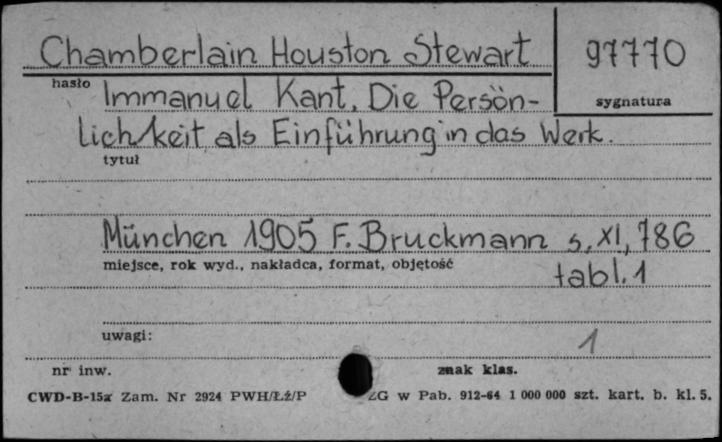 Chamberlain Houston Stewart 97770
hasło sygnatura
Immanuel Kant. Die Persön-
lichkeit als Einführung in das Werk.
tytuł
München 1905 F. Bruckmann s, XI, 786
miejsce, rok wyd., nakładca, format, objętość
tabl. 1
uwagi:
1
nr inw. znak klas.
CWD-B-15a Zam. Nr 2924 PWH/Łż/P ZG w Pab. 912-64 1 000 000 szt. kart. b. kl. 5.